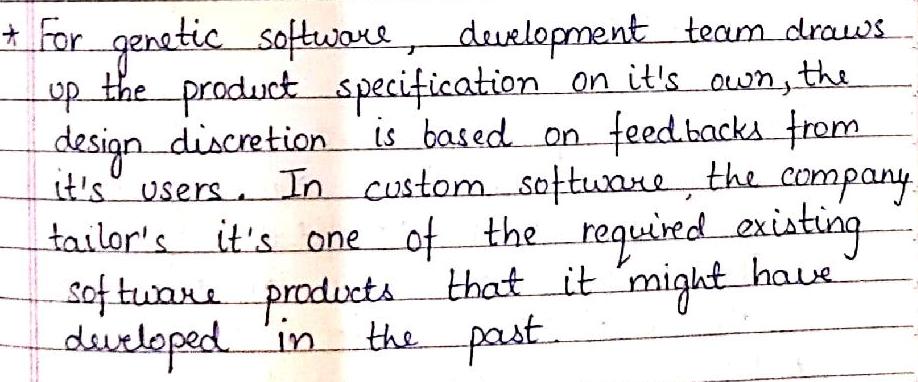 * For genetic software, development team draws
up the product specification on it's own, the
design discretion is based on feedbacks from
it's users. In custom software, the company
tailor's it's one of the required existing
software products that it might have
developed in the past.